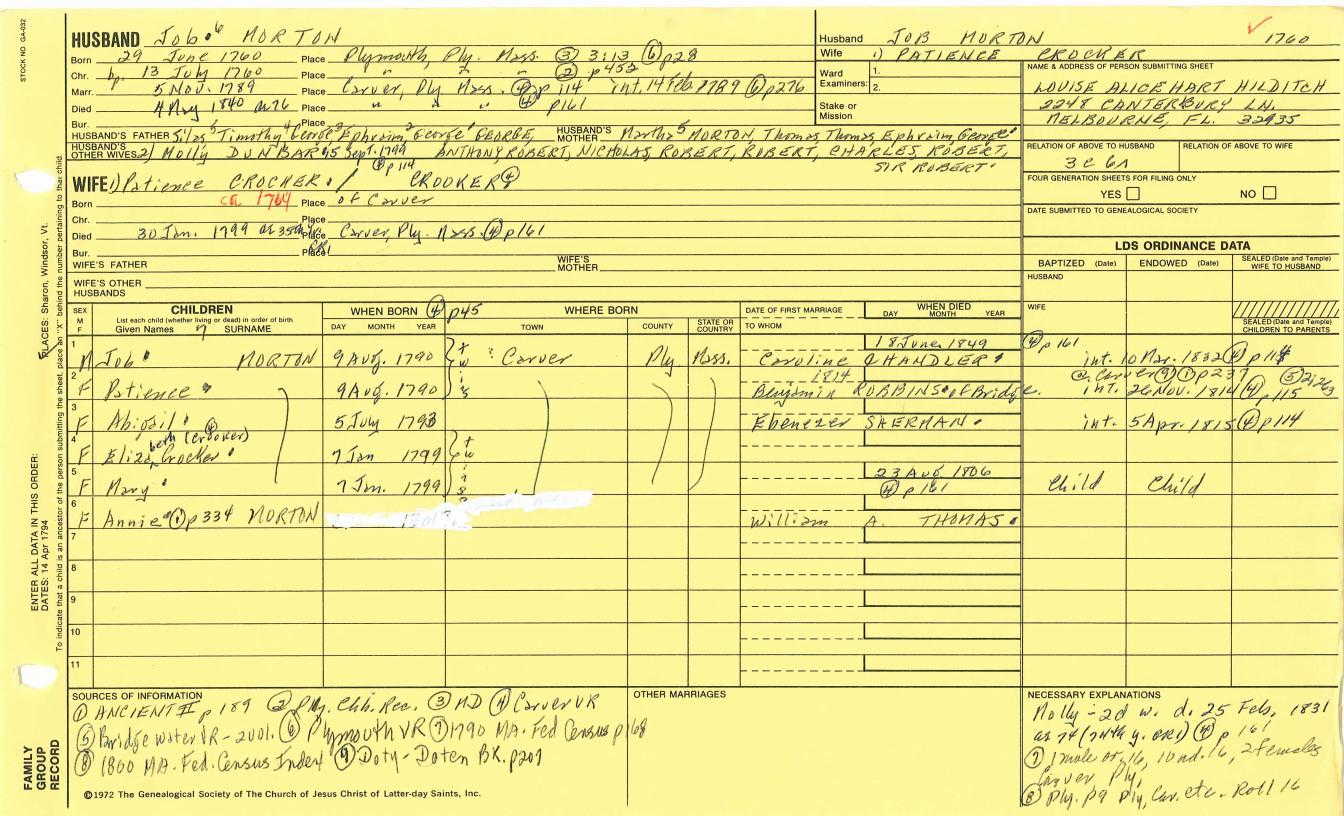 STOCK NO. GA-032
HUSBAND Job 6 MORTON
Born 29 June 1760 Place Plymouth, Ply. Mass. ③ 3:13 ⑥ p28
Chr. bp. 13 July 1760 Place " " " ② p 452
Marr. 5 Nov. 1789 Place Carver, Ply Mass. ④ p 114 int. 14 Feb 1789 ⑥ p276
Died 4 May 1840 Place " " " ④ p161
Bur. Place
HUSBAND'S FATHER Silas 5 Timothy 4 George 3 Ephraim 2 George 1 GEORGE, HUSBAND'S MOTHER Martha 5 MORTON, Thomas, Thomas, Ephraim, George 1
HUSBAND'S OTHER WIVES 2) Molly DUNBAR 15 Sept. 1799 ANTHONY, ROBERT, NICHOLAS, ROBERT, ROBERT, CHARLES, ROBERT,
④ p 114 SIR ROBERT.
WIFE 1) Patience CROCKER / CROOKER ④
Born ca 1764 Place of Carver
Chr. Place
Died 30 Jan. 1799 Place Carver, Ply. Mass. ④ p161
Bur. Place
WIFE'S FATHER WIFE'S MOTHER
WIFE'S OTHER HUSBANDS
Husband JOB MORTON 1760
Wife 1) PATIENCE CROCKER
Ward Examiners: 1. 2.
Stake or Mission
NAME & ADDRESS OF PERSON SUBMITTING SHEET
LOUISE ALICE HART HILDITCH
2248 CANTERBURY LN.
MELBOURNE, FL. 32935
RELATION OF ABOVE TO HUSBAND RELATION OF ABOVE TO WIFE
3 c 6 r
FOUR GENERATION SHEETS FOR FILING ONLY
YES NO
DATE SUBMITTED TO GENEALOGICAL SOCIETY
LDS ORDINANCE DATA
BAPTIZED (Date) ENDOWED (Date) SEALED (Date and Temple) WIFE TO HUSBAND
HUSBAND
WIFE
SEALED (Date and Temple) CHILDREN TO PARENTS
SEX M F CHILDREN WHEN BORN ④ p45 WHERE BORN DATE OF FIRST MARRIAGE WHEN DIED
List each child (whether living or dead) in order of birth
Given Names 7 SURNAME DAY MONTH YEAR TOWN COUNTY STATE OR COUNTRY TO WHOM DAY MONTH YEAR
1 M Job MORTON 9 Aug. 1790 Carver Ply Mass. Caroline CHANDLER 18 June 1849 ④ p 161 int. 10 Mar. 1832 ④ p 114
2 F Patience 9 Aug. 1790 1814 Benjamin ROBBINS of Bridge. @ Carver ⑨ ① p 237 ⑤ 2:263 int. 26 Nov. 1814 ④ p 115
3 F Abigail 5 July 1793 Ebenezer SHERMAN int. 5 Apr. 1815 ④ p 114
4 F Eliza beth (Crooker) ④ Crocker 7 Jan 1799
5 F Mary 7 Jan. 1799 23 Aug. 1806 ④ p 161 Child Child
6 F Annie ① p 334 MORTON William A. THOMAS
7
8
9
10
11
SOURCES OF INFORMATION
① ANCIENT II p 189 ② Ply. Chh. Rec. ③ MD ④ Carver VR
⑤ Bridgewater VR - 2 vol. ⑥ Plymouth VR ⑦ 1790 MA. Fed Census p 168
⑧ 1800 MA. Fed. Census Index ⑨ Doty-Doten BK. p207
OTHER MARRIAGES
NECESSARY EXPLANATIONS
Molly - 2d w. d. 25 Feb, 1831
ae 74 (74th y. GR1) ④ p 161
⑦ 1 male ov. 16, 1 und. 16, 2 females
Carver, Ply,
⑧ Ply. p9 Ply, Car. etc. Roll 16
©1972 The Genealogical Society of The Church of Jesus Christ of Latter-day Saints, Inc.
FAMILY GROUP RECORD
ENTER ALL DATA IN THIS ORDER:
DATES: 14 Apr 1794
PLACES: Sharon, Windsor, Vt.
To indicate that a child is an ancestor of the person submitting the sheet, place an "X" behind the number pertaining to that child.